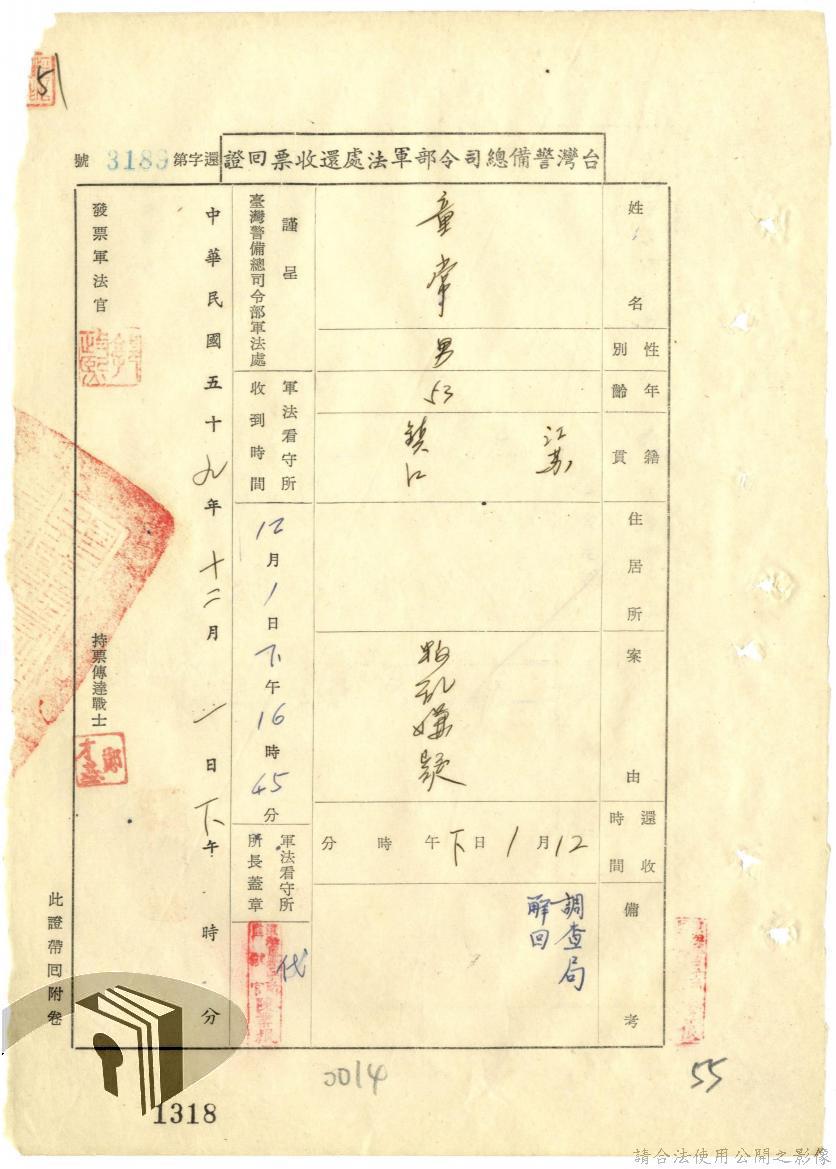 51
台灣警備總司令部軍法處還收票回證
還字第 3189 號
姓名
童常
性別
男
年齡
53
籍貫
江蘇
鎮江
住居所
案由
叛亂嫌疑
還收時間
12月1日下午 時 分
備考
調查局
解回
謹呈
臺灣警備總司令部軍法處
軍法看守所
收到時間
12月1日下午16時45分
軍法看守所
所長蓋章
代
中華民國五十九年十二月一日下午 時 分
發票軍法官
持票傳達戰士
此證帶回附卷
0014
55
1318
請合法使用公開之影像